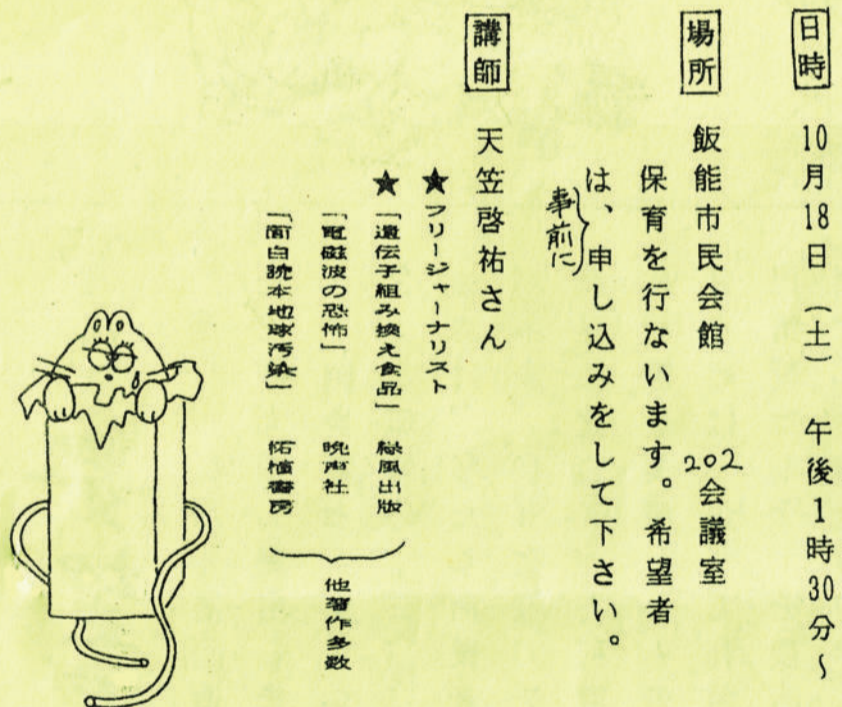 日時 10月18日(土) 午後1時30分~
場所 飯能市民会館 202会議室
保育を行ないます。希望者
は、事前に申し込みをして下さい。
講師 天笠啓祐さん
★フリージャーナリスト
★「遺伝子組み換え食品」 緑風出版
「電磁波の恐怖」 晩声社
「面白読本地球汚染」 柘植書房
他著作多数